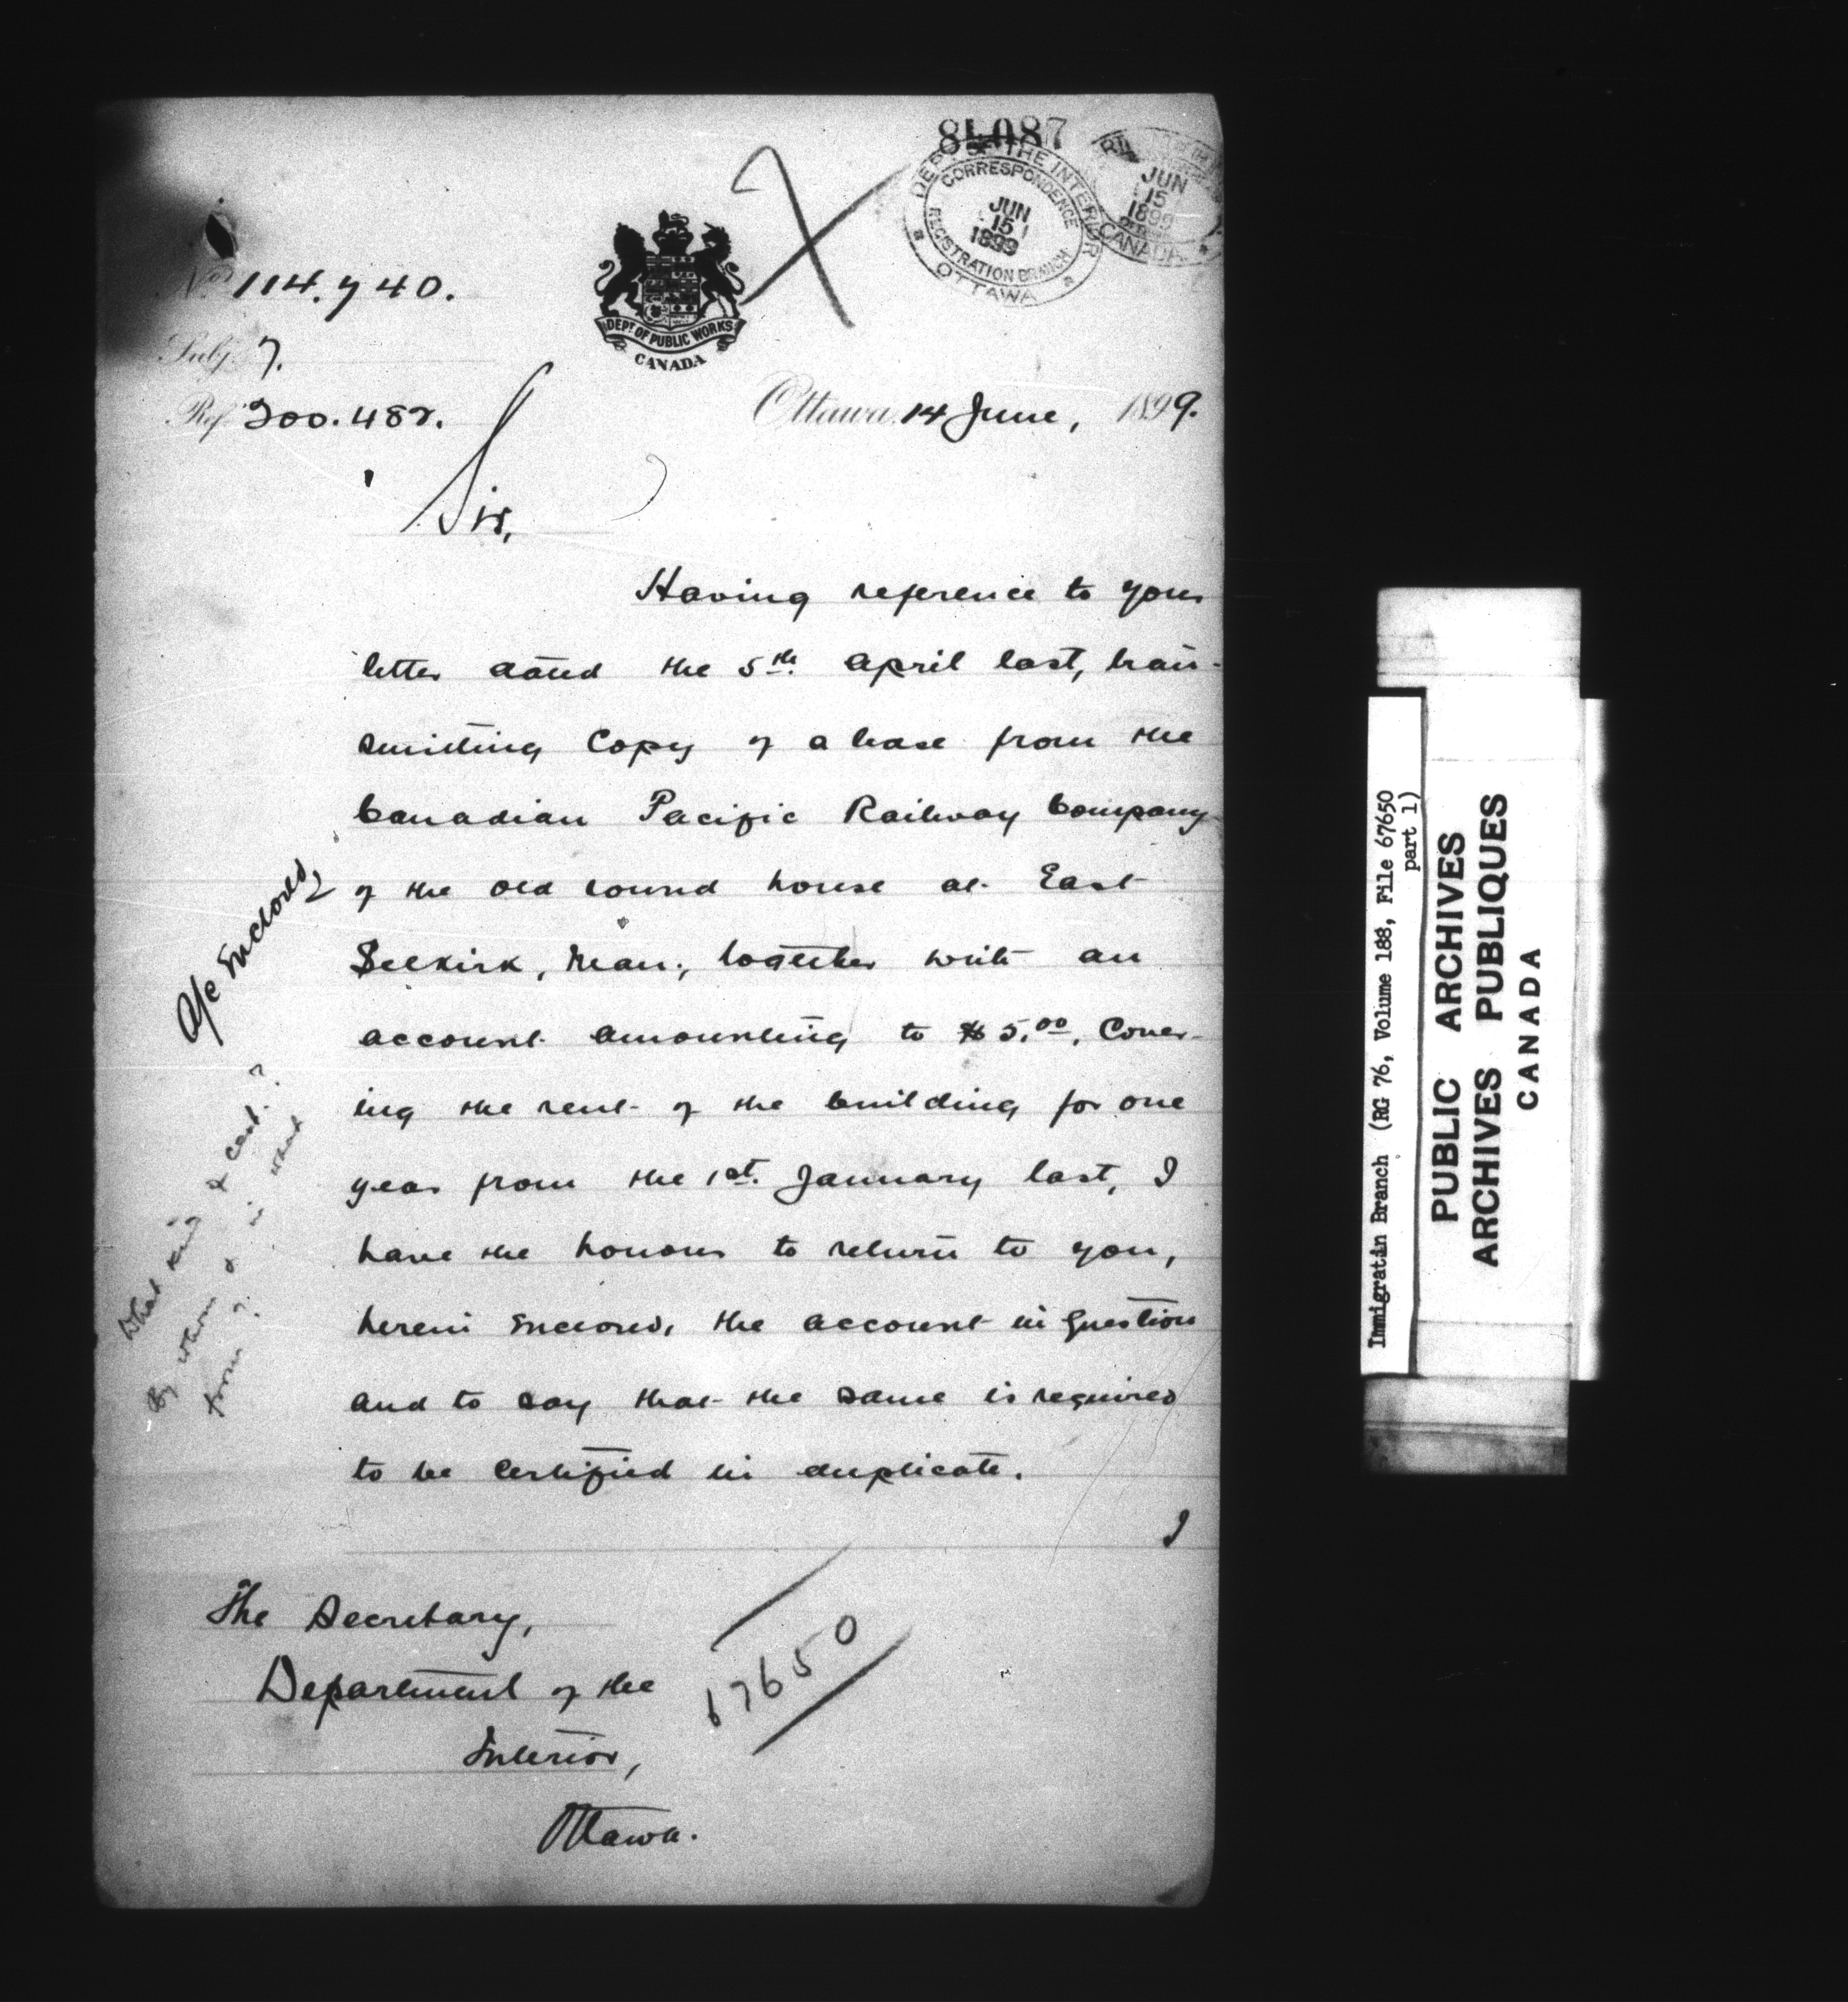 84087
DEPT. OF THE INTERIOR
CORRESPONDENCE
JUN
15
1899
REGISTRATION BRANCH
OTTAWA
JUN
15
1899
CANADA
No. 114.740.
Subj. 7.
Ref. 200.482.
DEPT. OF PUBLIC WORKS
CANADA
Ottawa 14 June, 1899.
Sir,
Having reference to your
letter dated the 5th. April last, tran-
smitting Copy of a lease from the
Canadian Pacific Railway Company
of the old round house at East
Selkirk, Man., together with an
account amounting to $5.00, Cover-
ing the rent of the building for one
year from the 1st. January last, I
have the honour to return to you,
herein enclosed, the account in question
and to say that the same is required
to be certified in duplicate.
I
a/c Enclosed
What kind of cert.?
By whom & in what
form?
The Secretary,
Department of the
Interior,
Ottawa.
67650
Immigratin Branch (RG 76, Volume 188, File 67650
part 1)
PUBLIC ARCHIVES
ARCHIVES PUBLIQUES
CANADA